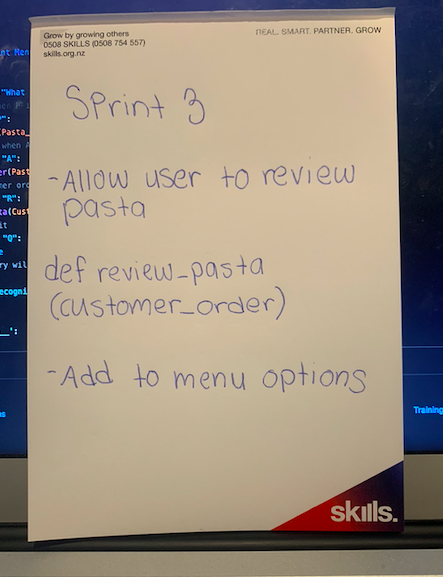 Grow by growing others
0508 SKILLS (0508 754 557)
skills.org.nz
REAL. SMART. PARTNER. GROW
Sprint 3
-Allow user to review
pasta
def review_pasta
(customer_order)
-Add to menu options
skills.
nt Ren
"What
":
(Pasta_
when A
"A":
er(Past
mer orc
"R":
ta(Cust
it
"Q":
ry wil
ecogni
__':
Training